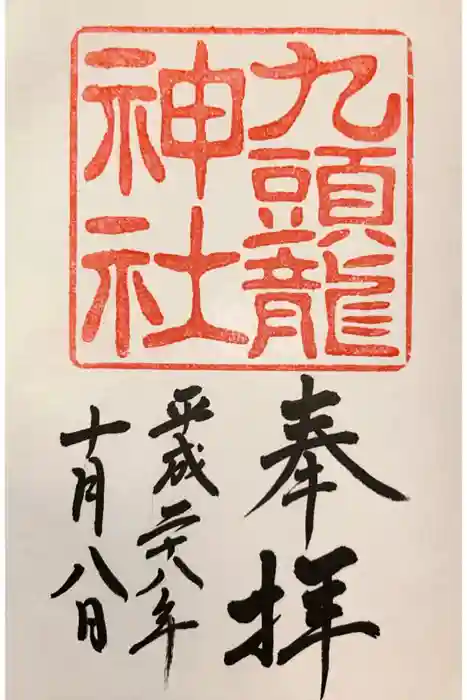 九頭龍
神社
奉拝
平成二十八年
十月八日